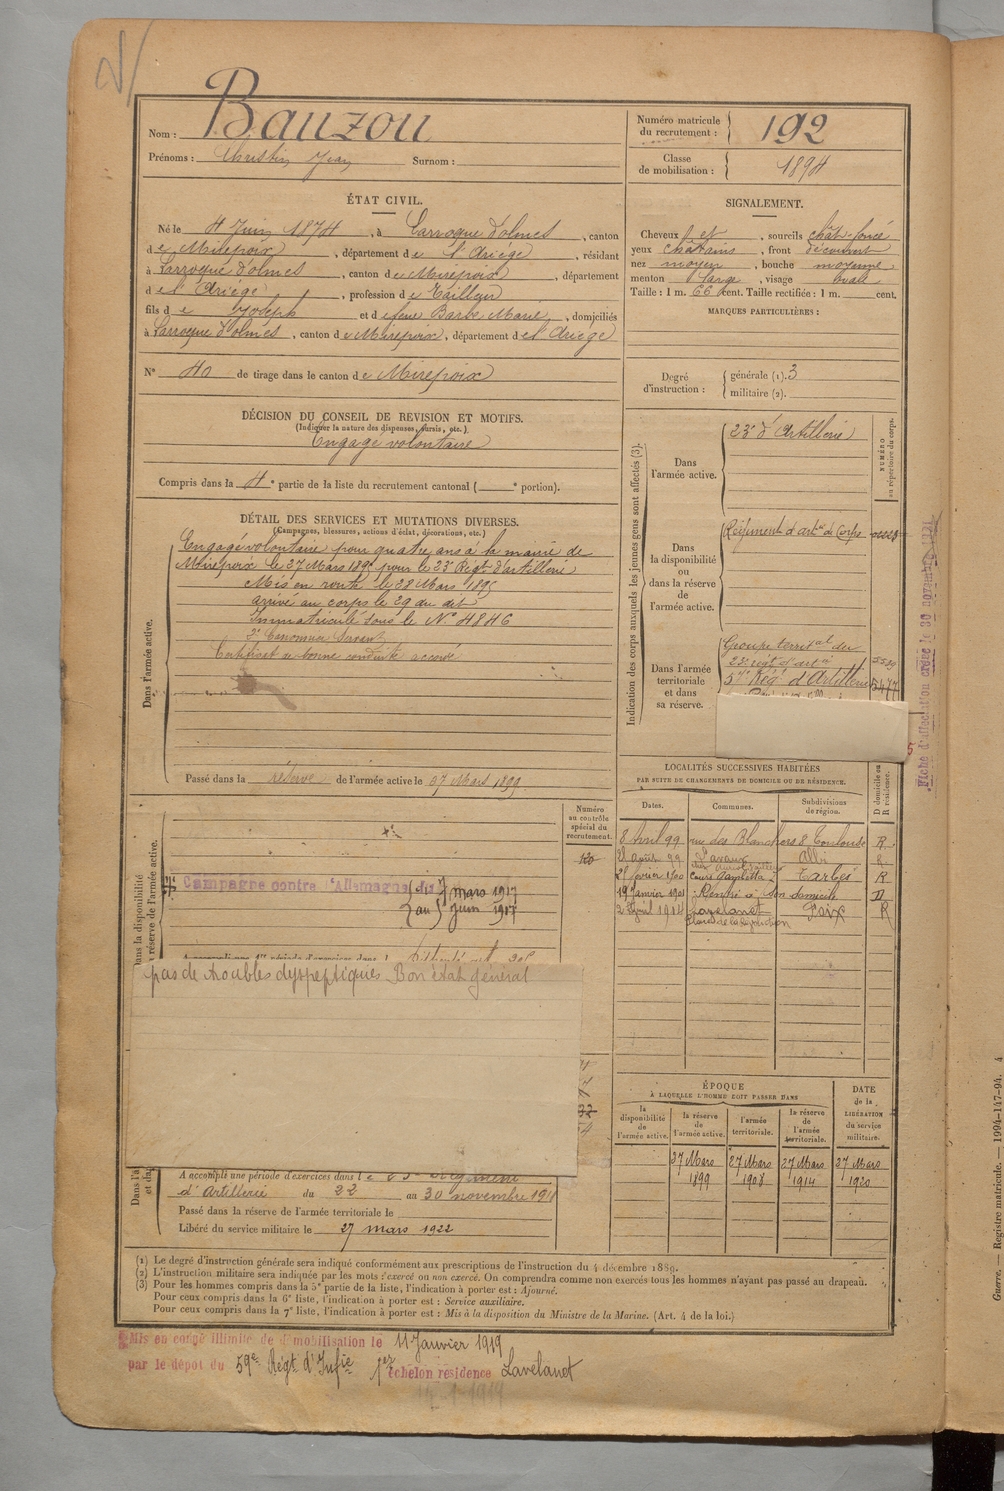 Nom : Bauzou
Prénoms : Christin Jean Surnom :
Numéro matricule du recrutement : 192
Classe de mobilisation : 1894
ÉTAT CIVIL.
Né le 4 Juin 1874, à Larroque d'olmes, canton
de Mirepoix, département de l'Ariège, résidant
à Larroque d'olmes, canton de Mirepoix, département
de l'Ariège, profession de Tailleur
fils de Joseph et de Barbe Marie, domiciliés
à Larroque d'olmes, canton de Mirepoix, département de l'Ariège
N° 40 de tirage dans le canton de Mirepoix
SIGNALEMENT.
Cheveux et, sourcils chât. foncé
yeux chatains, front découvert
nez moyen, bouche moyenne
menton large, visage ovale
Taille : 1 m. 66 cent. Taille rectifiée : 1 m. cent.
MARQUES PARTICULIÈRES :
Degré d'instruction : générale (1). 3
militaire (2).
DÉCISION DU CONSEIL DE REVISION ET MOTIFS.
(Indiquer la nature des dispenses, sursis, etc.)
Engagé volontaire
Compris dans la 4e partie de la liste du recrutement cantonal ( e portion).
DÉTAIL DES SERVICES ET MUTATIONS DIVERSES.
(Campagnes, blessures, actions d'éclat, décorations, etc.)
Dans l'armée active.
Engagé volontaire pour quatre ans à la mairie de
Mirepoix le 27 Mars 1895 pour le 23e Régt d'artillerie
Mis en route le 28 Mars 1895
arrivé au corps le 29 du dit
Immatriculé sous le N° 4846
2e Canonnier Servant
Certificat de bonne conduite accordé
Passé dans la réserve de l'armée active le 27 Mars 1899
Indication des corps auxquels les jeunes gens sont affectés (3).
NUMÉRO au répertoire du corps.
Dans l'armée active.
23e d'Artillerie
Dans la disponibilité ou dans la réserve de l'armée active.
Régiment d'artie de Corps
Dans l'armée territoriale et dans sa réserve.
Groupe territal du
23e régt d'artie
57e Rég' d'Artillerie 5477
Fiche d'affectation créée le 30 novembre 1921
LOCALITÉS SUCCESSIVES HABITÉES
PAR SUITE DE CHANGEMENTS DE DOMICILE OU DE RÉSIDENCE.
Dates. Communes. Subdivisions de région. D domicile ou R résidence.
8 Avril 99 rue des Blanchers 8 Toulouse R
21 août 99 Lavaur Albi R
2 février 1900 Cours Gambetta 7 Tarbes R
19 Janvier 1901 Rentré à son domicile D
2 Avril 1914 Lavelanet Foix R
Place de la
Dans la disponibilité
réserve de l'armée active.
Numéro au contrôle spécial du recrutement.
120
Campagne contre l'Allemagne du 7 mars 1917
au 5 Juin 1917
pas de troubles dyspeptiques. Bon état général
A accompli une période d'exercices dans le Régiment
d'Artillerie du 22 au 30 novembre 1911
Passé dans la réserve de l'armée territoriale le
Libéré du service militaire le 27 mars 1922
ÉPOQUE
À LAQUELLE L'HOMME DOIT PASSER DANS
la disponibilité de l'armée active. la réserve de l'armée active. l'armée territoriale. la réserve de l'armée territoriale.
DATE de la LIBÉRATION du service militaire.
27 Mars 27 Mars 27 Mars 27 Mars
1899 1908 1914 1920
(1) Le degré d'instruction générale sera indiqué conformément aux prescriptions de l'instruction du 4 décembre 1889.
(2) L'instruction militaire sera indiquée par les mots : exercé ou non exercé. On comprendra comme non exercés tous les hommes n'ayant pas passé au drapeau.
(3) Pour les hommes compris dans la 5e partie de la liste, l'indication à porter est : Ajourné.
Pour ceux compris dans la 6e liste, l'indication à porter est : Service auxiliaire.
Pour ceux compris dans la 7e liste, l'indication à porter est : Mis à la disposition du Ministre de la Marine. (Art. 4 de la loi.)
Mis en congé illimité de démobilisation le 11 Janvier 1919
par le dépôt du 59e Régt d'Infie 1er échelon résidence Lavelanet
Guerre. — Registre matricule. — 1994-147-94. 4